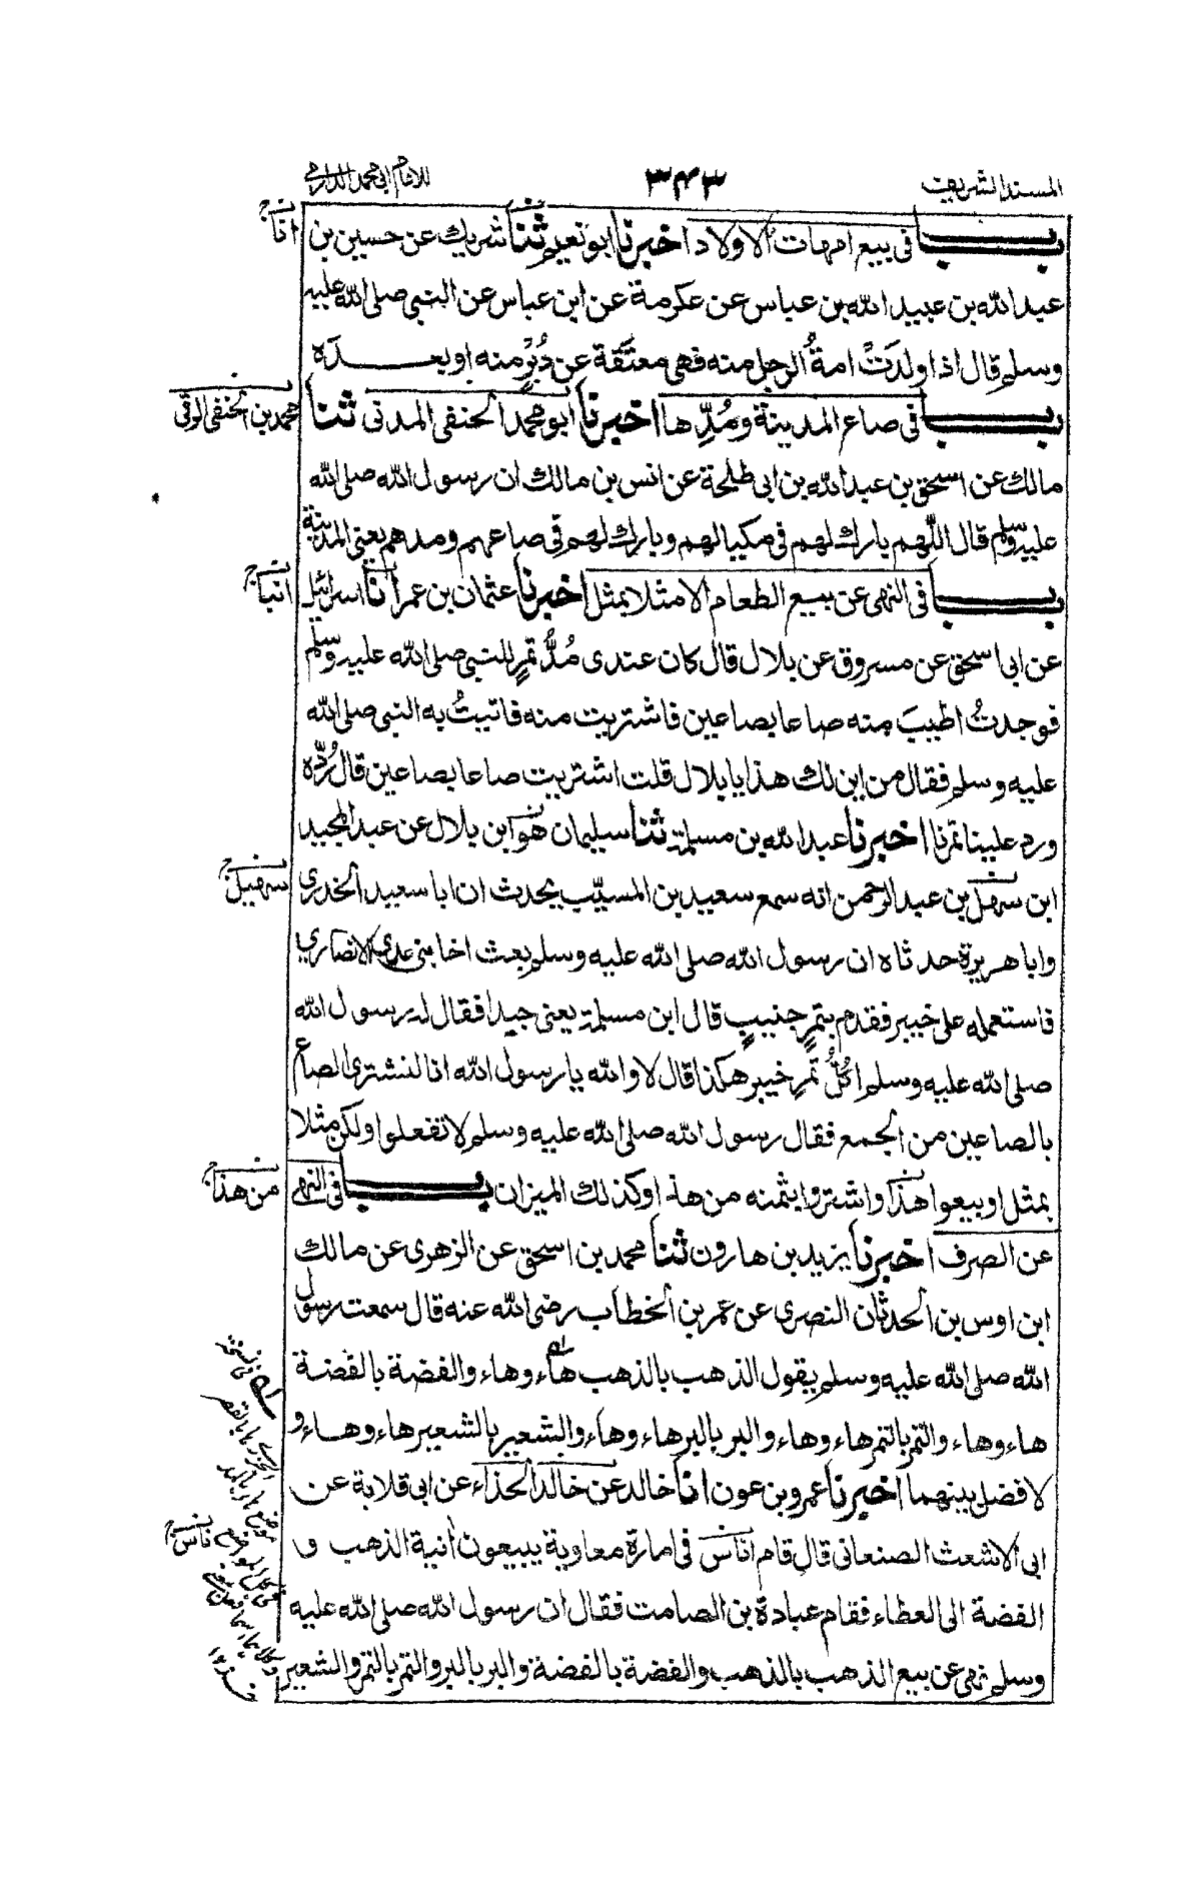 المسند الشريف ٣٤٣ للامام ابى محمد الدارمى
باب فى بيع امهات الاولاد اخبرنا ابو نعيم ثنا شريك عن حسين بن
انا
عبد الله بن عبيد الله بن عباس عن عكرمة عن ابن عباس عن النبى صلى الله عليه
وسلم قال اذا ولدَتْ امةُ الرجل منه فهى معتَقة عن دُبُرٍ منه او بعــدَه
باب فى صاع المدينة ومُدِّها اخبرنا ابو محمد الحنفى المدنى ثنا
محمد بن الحنفى
مالك عن اسحق بن عبد الله بن ابى طلحة عن انس بن مالك ان رسول الله صلى الله
عليه وسلم قال اللّهم بارك لهم فى مكيالهم وبارك لهم فى صاعهم ومدهم يعنى المدينة
باب فى النهى عن بيع الطعام الا مثلا بمثل اخبرنا عثمان بن عمر انا اسرائيل
انبا
عن ابى اسحق عن مسروق عن بلال قال كان عندى مُدُّ تمرٍ للنبى صلى الله عليه وسلم
فوجدتُ اطيبَ منه صاعا بصاعين فاشتريت منه فاتيتُ به النبى صلى الله
عليه وسلم فقال من اين لك هذا يا بلال قلت اشتريت صاعا بصاعين قال رُدّه
ورد علينا تمرنا اخبرنا عبد الله بن مسلمة ثنا سليمان هو ابن بلال عن عبد المجيد
ابن سهل بن عبد الرحمن انه سمع سعيد بن المسيّب يحدث ان ابا سعيد الخدرى
سهيل
وابا هريرة حدثاه ان رسول الله صلى الله عليه وسلم بعث اخا بنى عدى الانصارى
فاستعمله على خيبر فقدم بتمرٍ جنيبٍ قال ابن مسلمة يعنى جيدا فقال له رسول الله
صلى الله عليه وسلم اكُلُّ تمرِ خيبر هكذا قال لا والله يا رسول الله انا لنشترى الصاع
بالصاعين من الجمع فقال رسول الله صلى الله عليه وسلم لا تفعلوا ولكن مثلا
بمثل او بيعوا هذا واشتروا بثمنه من هذا وكذلك الميزان باب فى النهى
من هذا
عن الصرف اخبرنا يزيد بن هارون ثنا محمد بن اسحق عن الزهرى عن مالك
ابن اوس بن الحدثان النصرى عن عمر بن الخطاب رضى الله عنه قال سمعت رسول
الله صلى الله عليه وسلم يقول الذهب بالذهب هاء وهاء والفضة بالفضة
هاء وهاء والتمر بالتمر هاء وهاء والبر بالبر هاء وهاء والشعير بالشعير هاء وهاء و
لا فضل بينهما اخبرنا عمرو بن عون انا خالد عن خالد الحذاء عن ابى قلابة عن
ابى الاشعث الصنعانى قال قام اناس فى امارة معاوية يبيعون آنية الذهب و
ناس
الفضة الى العطاء فقام عبادة بن الصامت فقال ان رسول الله صلى الله عليه
وسلم نهى عن بيع الذهب بالذهب والفضة بالفضة والبر بالبر والتمر بالتمر والشعير